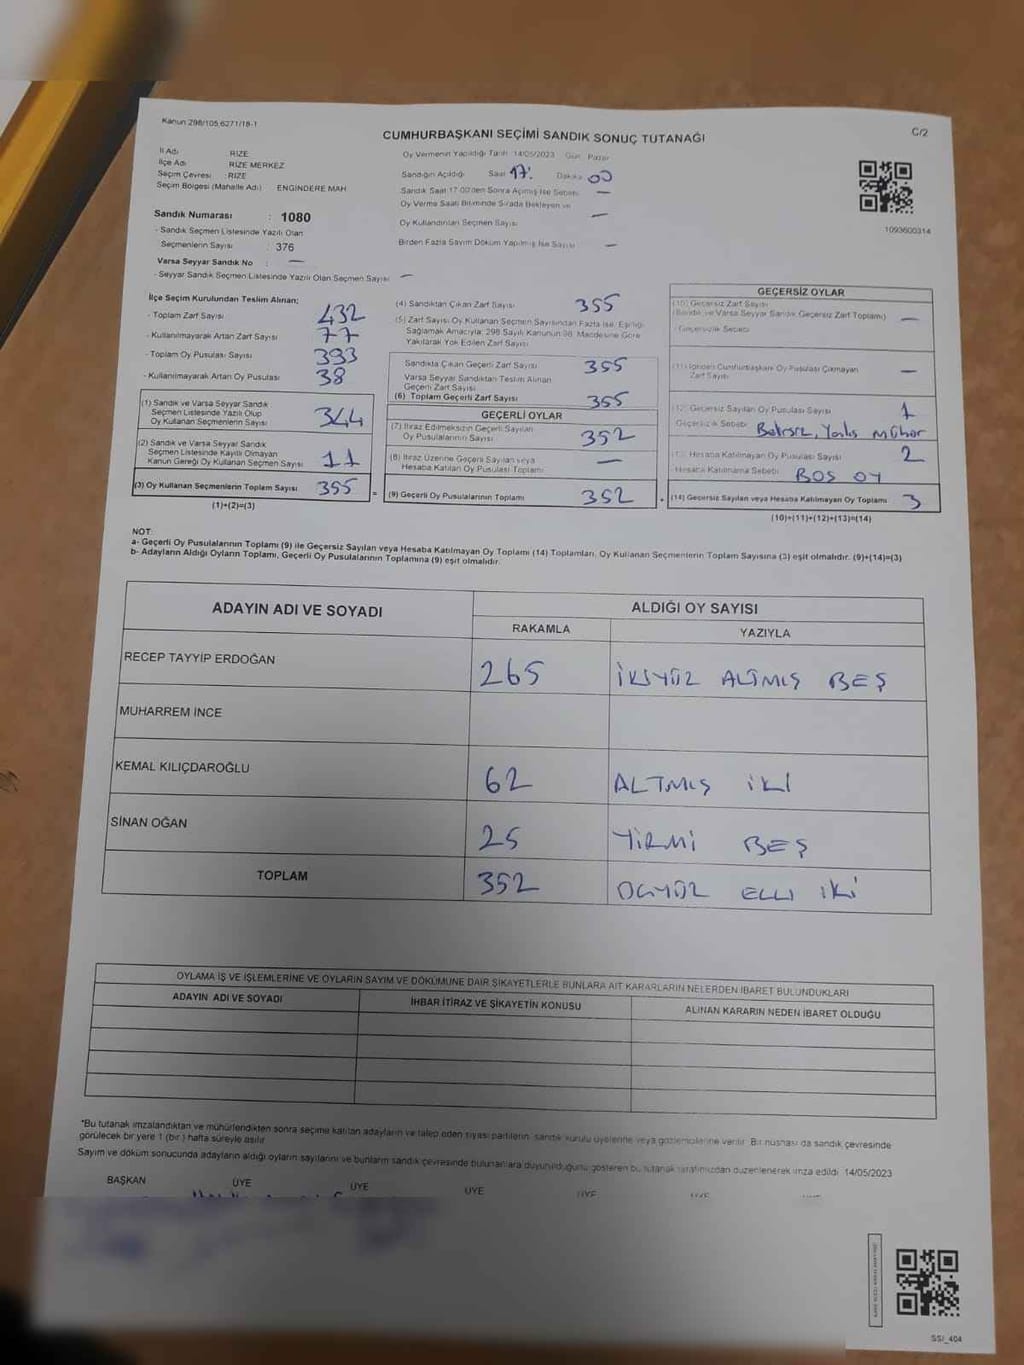 Kanun 298/105,6271/18-1
C/2
CUMHURBAŞKANI SEÇİMİ SANDIK SONUÇ TUTANAĞI
İl Adı RİZE
İlçe Adı RİZE MERKEZ
Seçim Çevresi : RİZE
Seçim Bölgesi (Mahalle Adı) ENGİNDERE MAH.
Oy Vermenin Yapıldığı Tarih 14/05/2023 Gün Pazar
Sandığın Açıldığı Saat 17: Dakika 00
Sandık Saat 17:00'den Sonra Açılmış İse Sebebi —
Oy Verme Saati Bitiminde Sırada Bekleyen ve
Oy Kullandırılan Seçmen Sayısı —
Birden Fazla Sayım Döküm Yapılmış İse Sayısı —
1093600314
Sandık Numarası : 1080
- Sandık Seçmen Listesinde Yazılı Olan
Seçmenlerin Sayısı : 376
Varsa Seyyar Sandık No : —
- Seyyar Sandık Seçmen Listesinde Yazılı Olan Seçmen Sayısı —
İlçe Seçim Kurulundan Teslim Alınan;
- Toplam Zarf Sayısı 432
- Kullanılmayarak Artan Zarf Sayısı 77
- Toplam Oy Pusulası Sayısı 393
- Kullanılmayarak Artan Oy Pusulası 38
(1) Sandık ve Varsa Seyyar Sandık
Seçmen Listesinde Yazılı Olup
Oy Kullanan Seçmenlerin Sayısı 344
(2) Sandık ve Varsa Seyyar Sandık
Seçmen Listesinde Kayıtlı Olmayan
Kanun Gereği Oy Kullanan Seçmen Sayısı 11
(3) Oy Kullanan Seçmenlerin Toplam Sayısı 355
(1)+(2)=(3)
(4) Sandıktan Çıkan Zarf Sayısı 355
(5) Zarf Sayısı Oy Kullanan Seçmen Sayısından Fazla İse, Eşitliği
Sağlamak Amacıyla; 298 Sayılı Kanunun 98. Maddesine Göre
Yakılarak Yok Edilen Zarf Sayısı
Sandıkta Çıkan Geçerli Zarf Sayısı 355
Varsa Seyyar Sandıktan Teslim Alınan
Geçerli Zarf Sayısı
(6) Toplam Geçerli Zarf Sayısı 355
GEÇERLİ OYLAR
(7) İtiraz Edilmeksizin Geçerli Sayılan
Oy Pusulalarının Sayısı 352
(8) İtiraz Üzerine Geçerli Sayılan veya
Hesaba Katılan Oy Pusulası Toplamı —
= (9) Geçerli Oy Pusulalarının Toplamı 352
GEÇERSİZ OYLAR
(10) Geçersiz Zarf Sayısı
(Sandık ve Varsa Seyyar Sandık Geçersiz Zarf Toplamı) —
- Geçersizlik Sebebi
(11) İçinden Cumhurbaşkanı Oy Pusulası Çıkmayan
Zarf Sayısı —
(12) Geçersiz Sayılan Oy Pusulası Sayısı 1
Geçersizlik Sebebi Belirsiz, Yanlış mühür
(13) Hesaba Katılmayan Oy Pusulası Sayısı 2
- Hesaba Katılmama Sebebi BOŞ OY
+ (14) Geçersiz Sayılan veya Hesaba Katılmayan Oy Toplamı 3
(10)+(11)+(12)+(13)=(14)
NOT:
a- Geçerli Oy Pusulalarının Toplamı (9) ile Geçersiz Sayılan veya Hesaba Katılmayan Oy Toplamı (14) Toplamları, Oy Kullanan Seçmenlerin Toplam Sayısına (3) eşit olmalıdır. (9)+(14)=(3)
b- Adayların Aldığı Oyların Toplamı, Geçerli Oy Pusulalarının Toplamına (9) eşit olmalıdır.
ADAYIN ADI VE SOYADI
ALDIĞI OY SAYISI
RAKAMLA YAZIYLA
RECEP TAYYİP ERDOĞAN 265 İKİYÜZ ALTMIŞ BEŞ
MUHARREM İNCE
KEMAL KILIÇDAROĞLU 62 ALTMIŞ İKİ
SİNAN OĞAN 25 YİRMİ BEŞ
TOPLAM 352 ÜÇYÜZ ELLİ İKİ
OYLAMA İŞ VE İŞLEMLERİNE VE OYLARIN SAYIM VE DÖKÜMÜNE DAİR ŞİKAYETLERLE BUNLARA AİT KARARLARIN NELERDEN İBARET BULUNDUKLARI
ADAYIN ADI VE SOYADI İHBAR İTİRAZ VE ŞİKAYETİN KONUSU ALINAN KARARIN NEDEN İBARET OLDUĞU
*Bu tutanak imzalandıktan ve mühürlendikten sonra seçime katılan adayların ve talep eden siyasi partilerin, sandık kurulu üyelerine veya gözlemcilerine verilir. Bir nüshası da sandık çevresinde
görülecek bir yere 1 (bir) hafta süreyle asılır.
Sayım ve döküm sonucunda adayların aldığı oyların sayılarını ve bunların sandık çevresinde bulunanlara duyurulduğunu gösteren bu tutanak tarafımızdan düzenlenerek imza edildi. 14/05/2023
BAŞKAN ÜYE ÜYE ÜYE ÜYE
SSI_404